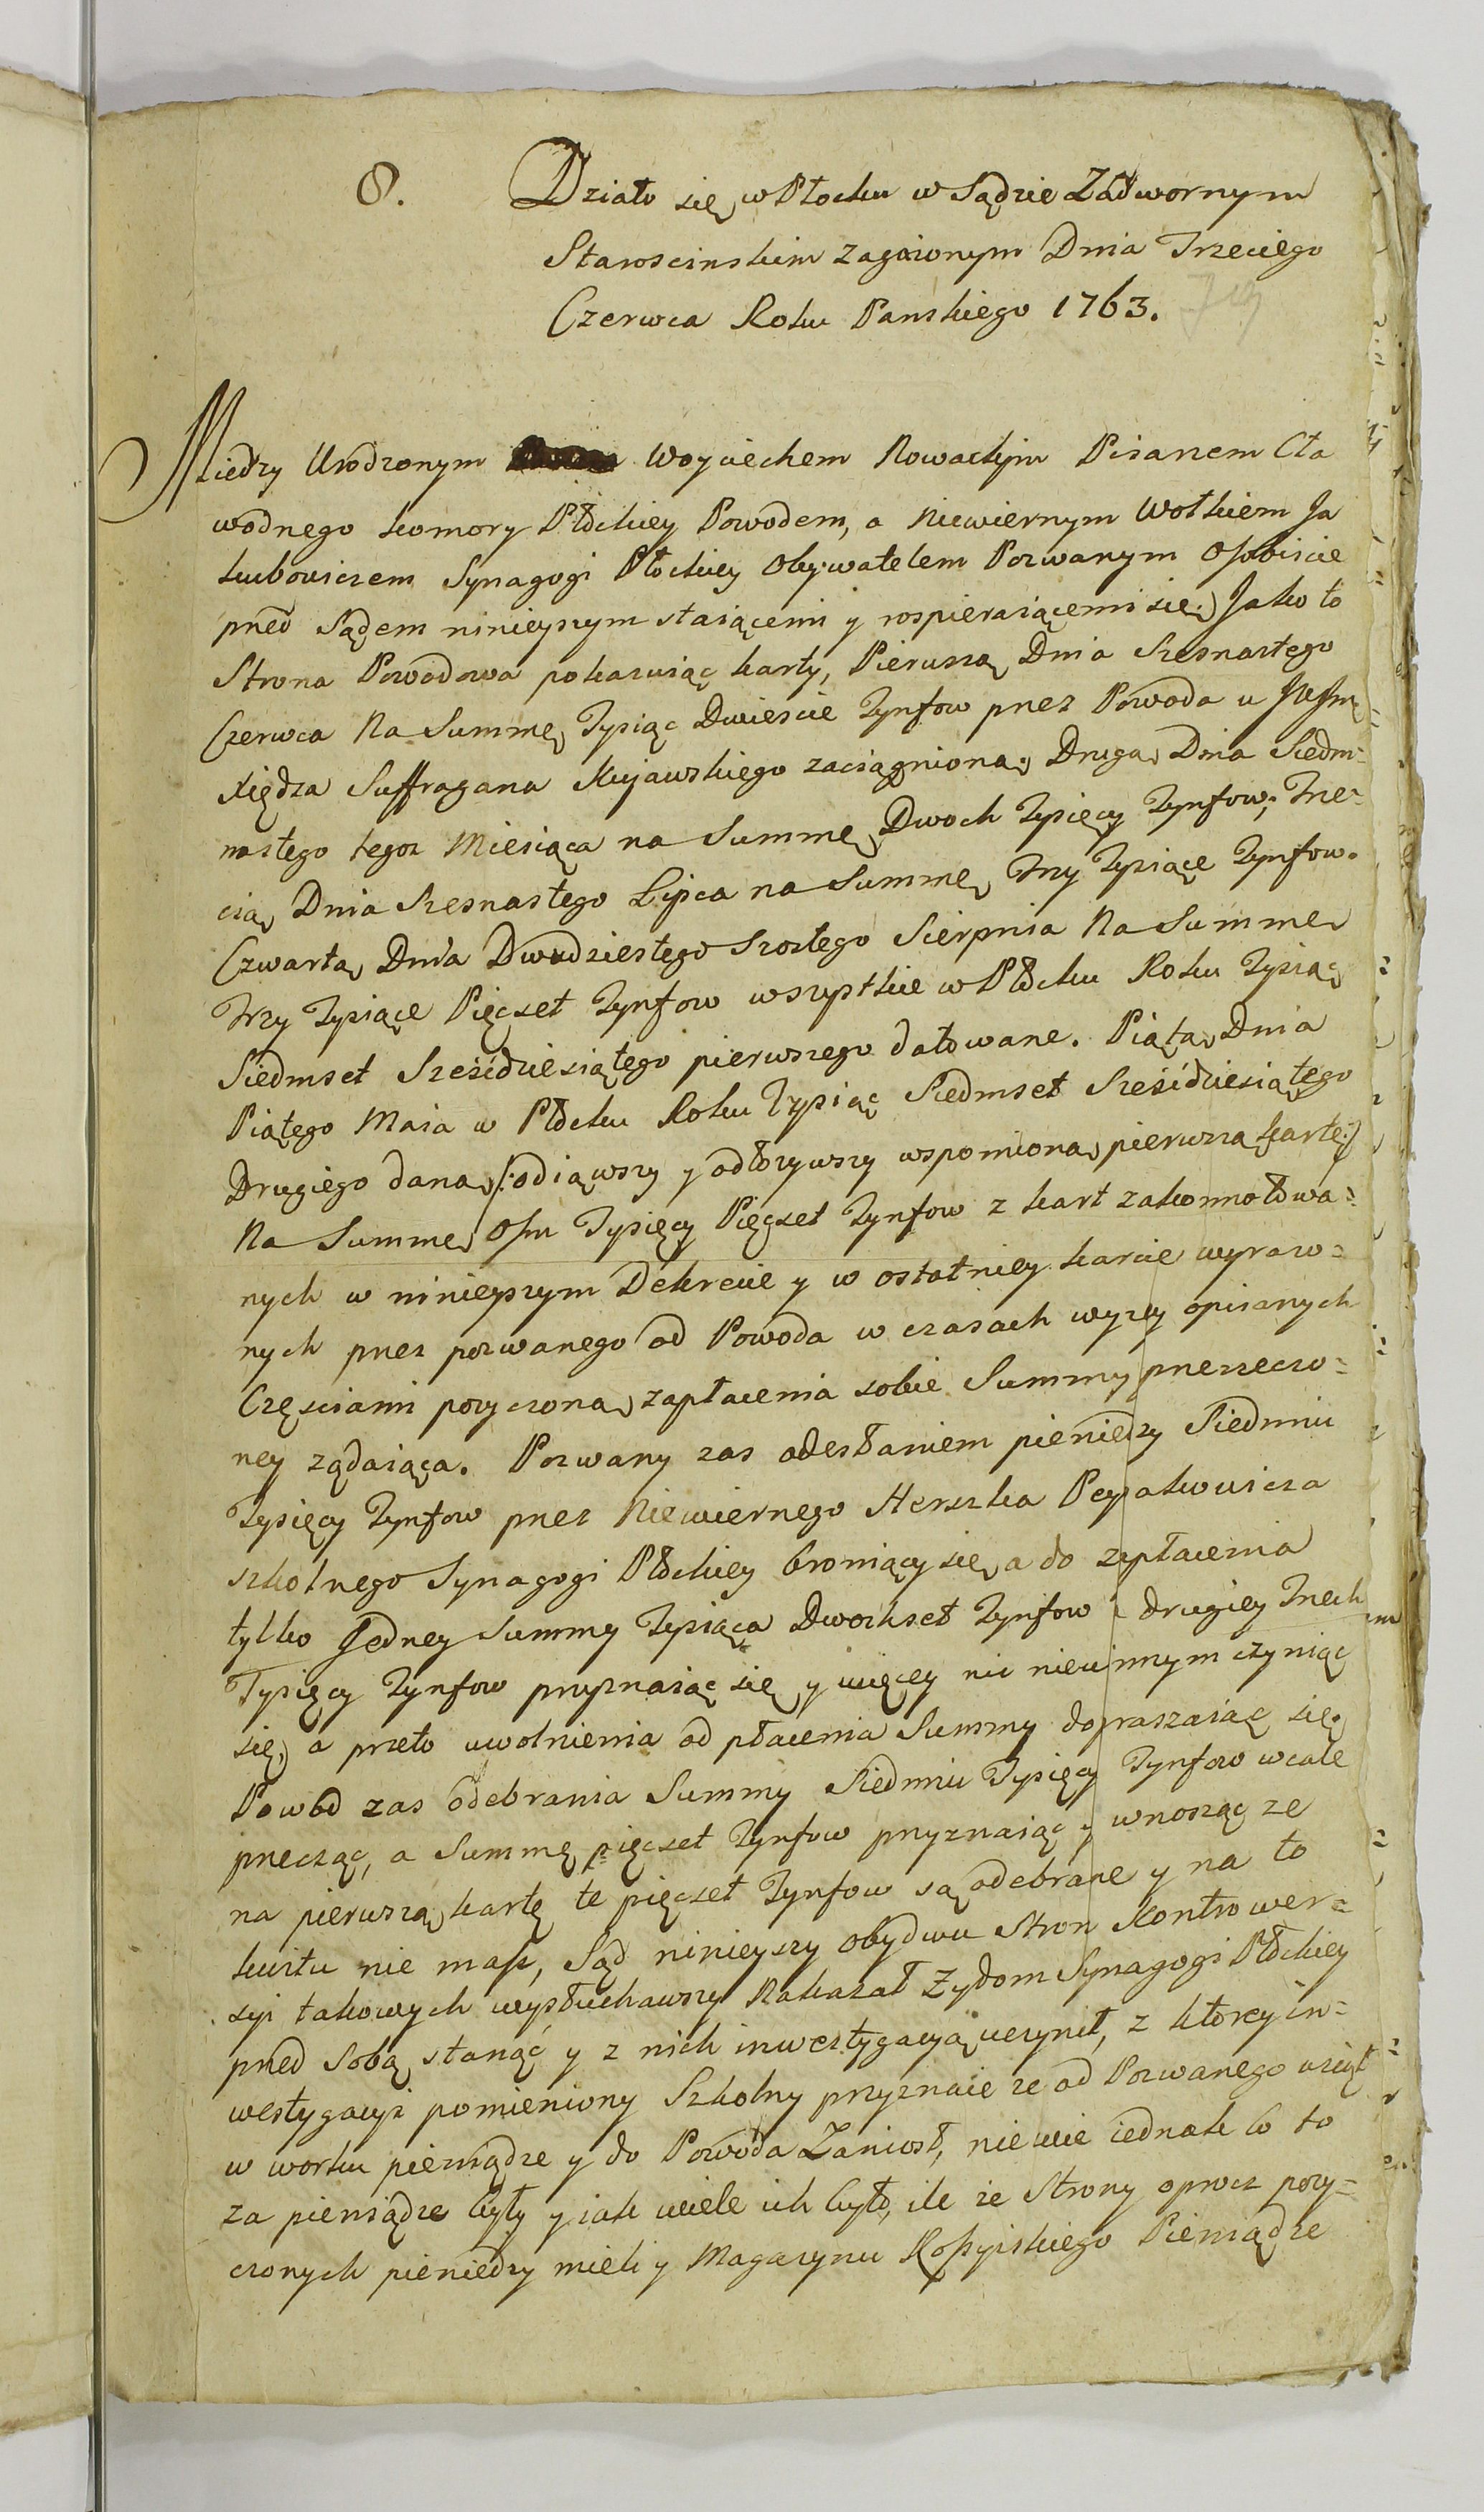 8. Działo się w Płocku w Sądzie Zadwornym
Staroscinskim zagaionym Dnia Trzeciego
Czerwca Roku Panskiego 1763.
Miedzy Urodzonym Woyciechem Nowackim Pisarzem Cła
wodnego komory Płockiey Powodem, a Niewiernym Wołkiem Ja
kubowiczem Synagogi Płockiey Obywatelem Pozwanym Osobiscie
przed Sądem ninieyszym staiącemi y rospieraiącemi się. Jako to
Strona Powodowa pokazuiąc karty, Pierwszą Dnia Szesnastego
Czerwca Na Summę Tysiąc Dwiescie Tynfow przez Powoda u
Xiędza Suffragana Kujawskiego zaciągnioną; Drugą Dnia Siedm-
nastego tegoz Miesiąca na Summę Dwoch Tysięcy Tynfow; Trze-
cią Dnia Szesnastego Lipca na Summę Trzy Tysiące Tynfow.
Czwartą Dnia Dwudziestego Szostego Sierpnia Na Summę
Trzy Tysiące Pięcset Tynfow wszystkie w Płocku Roku Tysiąc
Siedmset Sześćdziesiątego pierwszego datowane. Piątą Dnia
Piątego Maia w Płocku Roku Tysiąc Siedmset Sześćdziesiątego
Drugiego daną /:odiąwszy y odłozywszy wspomioną pierwszą kartę:/
Na Summę Osm Tysięcy Pięcset Tynfow z kart zakonnotowa-
nych w ninieyszym Dekrecie y w ostatniey karcie wyrazo-
nych przez pozwanego od Powoda w czasach wyzey opisanych
Częsciami pozyczoną, zapłacenia sobie Summy przerzeczo-
ney ządaiąca. Pozwany zas odesłaniem pieniedzy Siedmiu
Tysięcy Tynfow przez Niewiernego Herszka Peysakowicza
szkolnego Synagogi Płockiey broniący się, a do zapłacenia
tylko Jedney Summy Tysiąca Dwochset Tynfow i drugiey Trzech
Tysięcy Tynfow przyznaiąc się y więcey nic niewinnym czyniąc
się, a przeto uwolnienia od płacenia Summy dopraszaiąc się.
Powod zas odebrania Summy Siedmiu Tysięcy Tynfow wcale
przecząc, a Summę pięcset Tynfow przyznaiąc y wnosząc ze
na pierwszą kartę te pięcset Tynfow są odebrane y na to
kwitu nie masz, Sąd ninieyszy obydwu Stron Kontrower-
syi takowych wysłuchawszy Nakazał Zydom Synagogi Płockiey
przed Sobą stanąć y z nich inwestygacyą uczynił, z ktorey in-
westygacyi pomieniony Szkolny przyznaie ze od Pozwanego wziął
w worku pieniądze y do Powoda Zaniosł, nie wie iednak co to
za pieniądze były y iak wiele ich było, ile ze Strony oprocz pozy-
czonych pieniedzy mieli y Magazynu Rossyiskiego Pieniądze